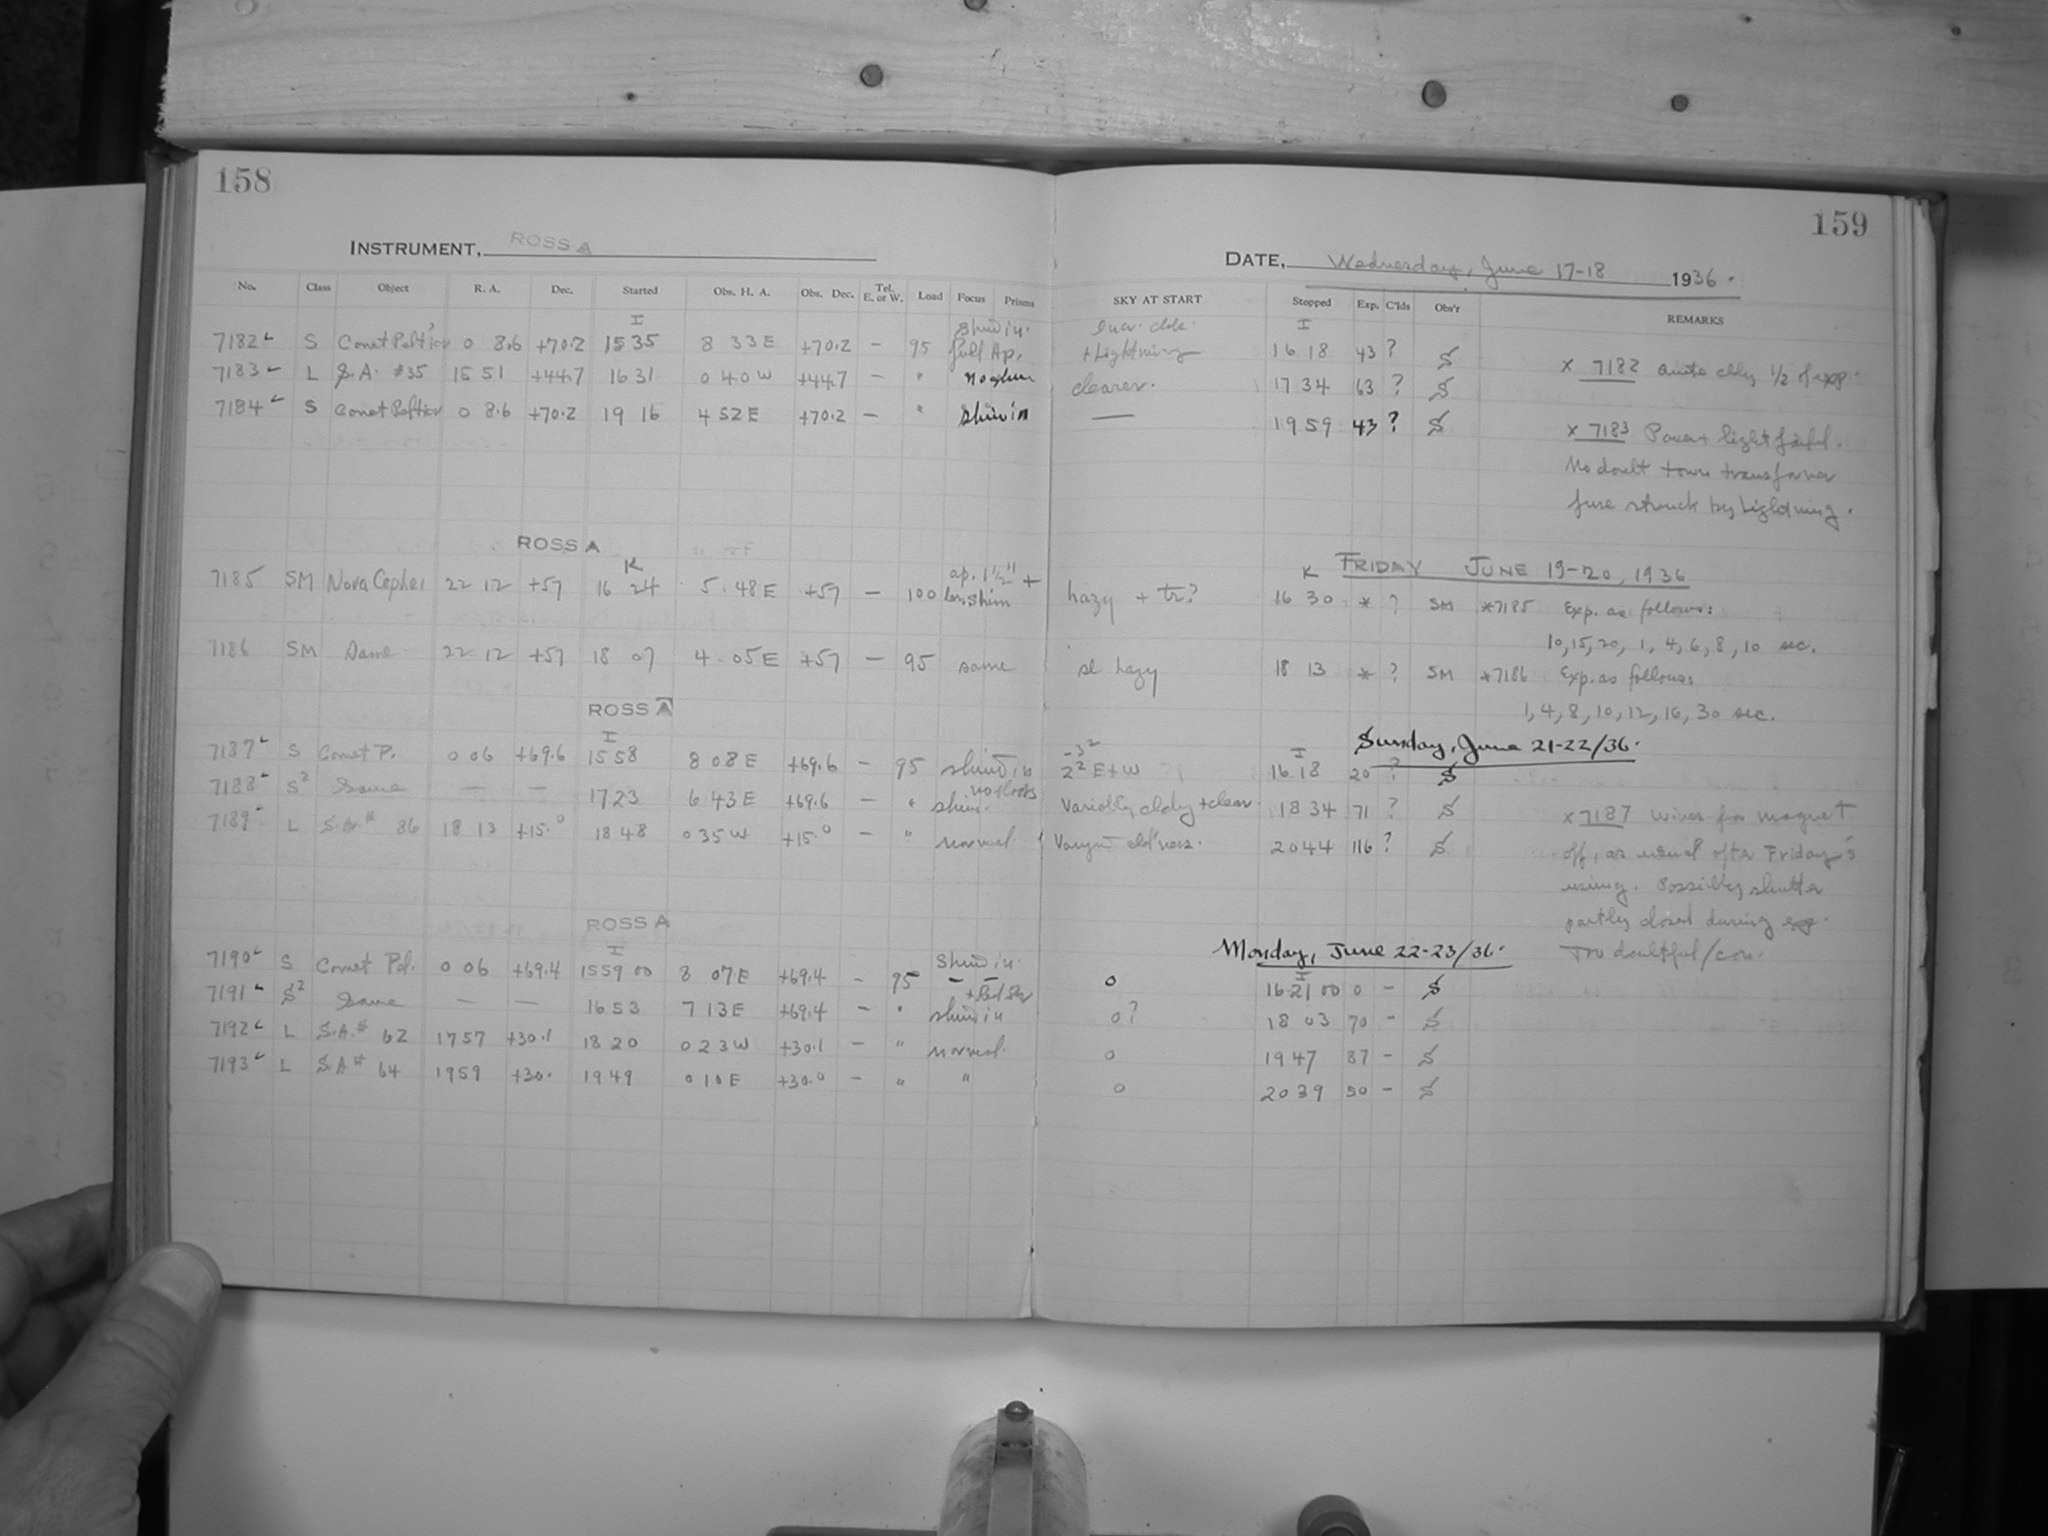 158
159
INSTRUMENT, ROSS A
DATE, Wednesday, June 17-18 1936.
No. Class Object R. A. Dec. Started Obs. H. A. Obs. Dec. Tel. E. or W. Load Focus Prisms SKY AT START Stopped Exp. C'lds Obs'r REMARKS
I shim in. I
7182 S Comet Peltier 0 8.6 +70.2 15 35 8 33 E +70.2 — 95 full Ap. + Lightning 16 18 43 ? S x 7182 quite cldy 1/2 of exp.
7183 L S.A. #35 15 51 +44.7 16 31 0 40 W +44.7 — " no shim clearer. 17 34 63 ? S
7184 S Comet Peltier 0 8.6 +70.2 19 16 4 52 E +70.2 — " shim in — 19 59 43 ? S
x 7183 Power + light failed.
No doubt town transformer
fuse struck by lightning.
ROSS A
FRIDAY JUNE 19-20, 1936
K ap. 1 1/2" + K
7185 SM Nova Cephei 22 12 +57 16 24 5.48 E +57 — 100 shim hazy + tr? 16 30 * ? SM *7185 Exp. as follows:
10, 15, 20, 1, 4, 6, 8, 10 sec.
7186 SM Same 22 12 +57 18 07 4.05 E +57 — 95 same sl hazy 18 13 * ? SM *7186 Exp. as follows:
1, 4, 8, 10, 12, 16, 30 sec.
ROSS A
Sunday, June 21-22/36.
I I
7187 S Comet P. 0 06 +69.6 15 58 8 08 E +69.6 — 95 shim in 2² E + W 16 18 20 ? S
7188 S² Same — — 17 23 6 43 E +69.6 — " shim. Variably cldy + clear. 18 34 71 ? S
7189 L S.A.# 86 18 13 +15.0 18 48 0 35 W +15.0 — " normal 20 44 116 ? S
x 7187 wires for magnet
off, as usual after Friday's
using. Possibly shutter
partly closed during exp.
Too doubtful/
ROSS A
Monday, June 22-23/36.
I shim in. I
7190 S Comet Pel. 0 06 +69.4 15 59 00 8 07 E +69.4 — 95 0 16 21 00 0 — S
7191 S² Same — — 16 53 7 13 E +69.4 — " shim in 0? 18 03 70 — S
7192 L S.A.# 62 17 57 +30.1 18 20 0 23 W +30.1 — " normal 0 19 47 87 — S
7193 L S.A.# 64 19 59 +30. 19 49 0 10 E +30.0 — " " 0 20 39 50 — S